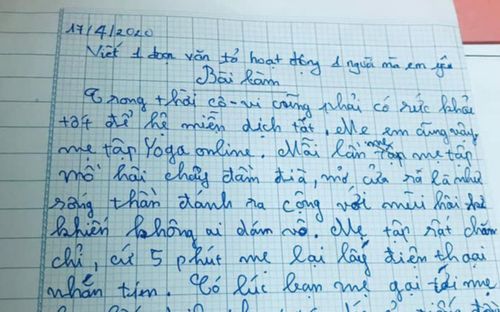 17/4/2020
Viết 1 đoạn văn tả hoạt động 1 người mà em yêu
Bài làm
Trong thời cô-vi cũng phải có sức khỏe
tốt để hệ miễn dịch tốt. Mẹ em cũng vậy
mẹ tập Yoga online. Mỗi lần mẹ tập mẹ tập
mồ hôi chảy đầm đìa, mở cửa ra là như
sóng thần đánh ra cộng với mùi hôi
khiến không ai dám vô. Mẹ tập rất chăm
chỉ, cứ 5 phút mẹ lại lấy điện thoại
nhắn tin. Có lúc bạn mẹ gọi tới mẹ